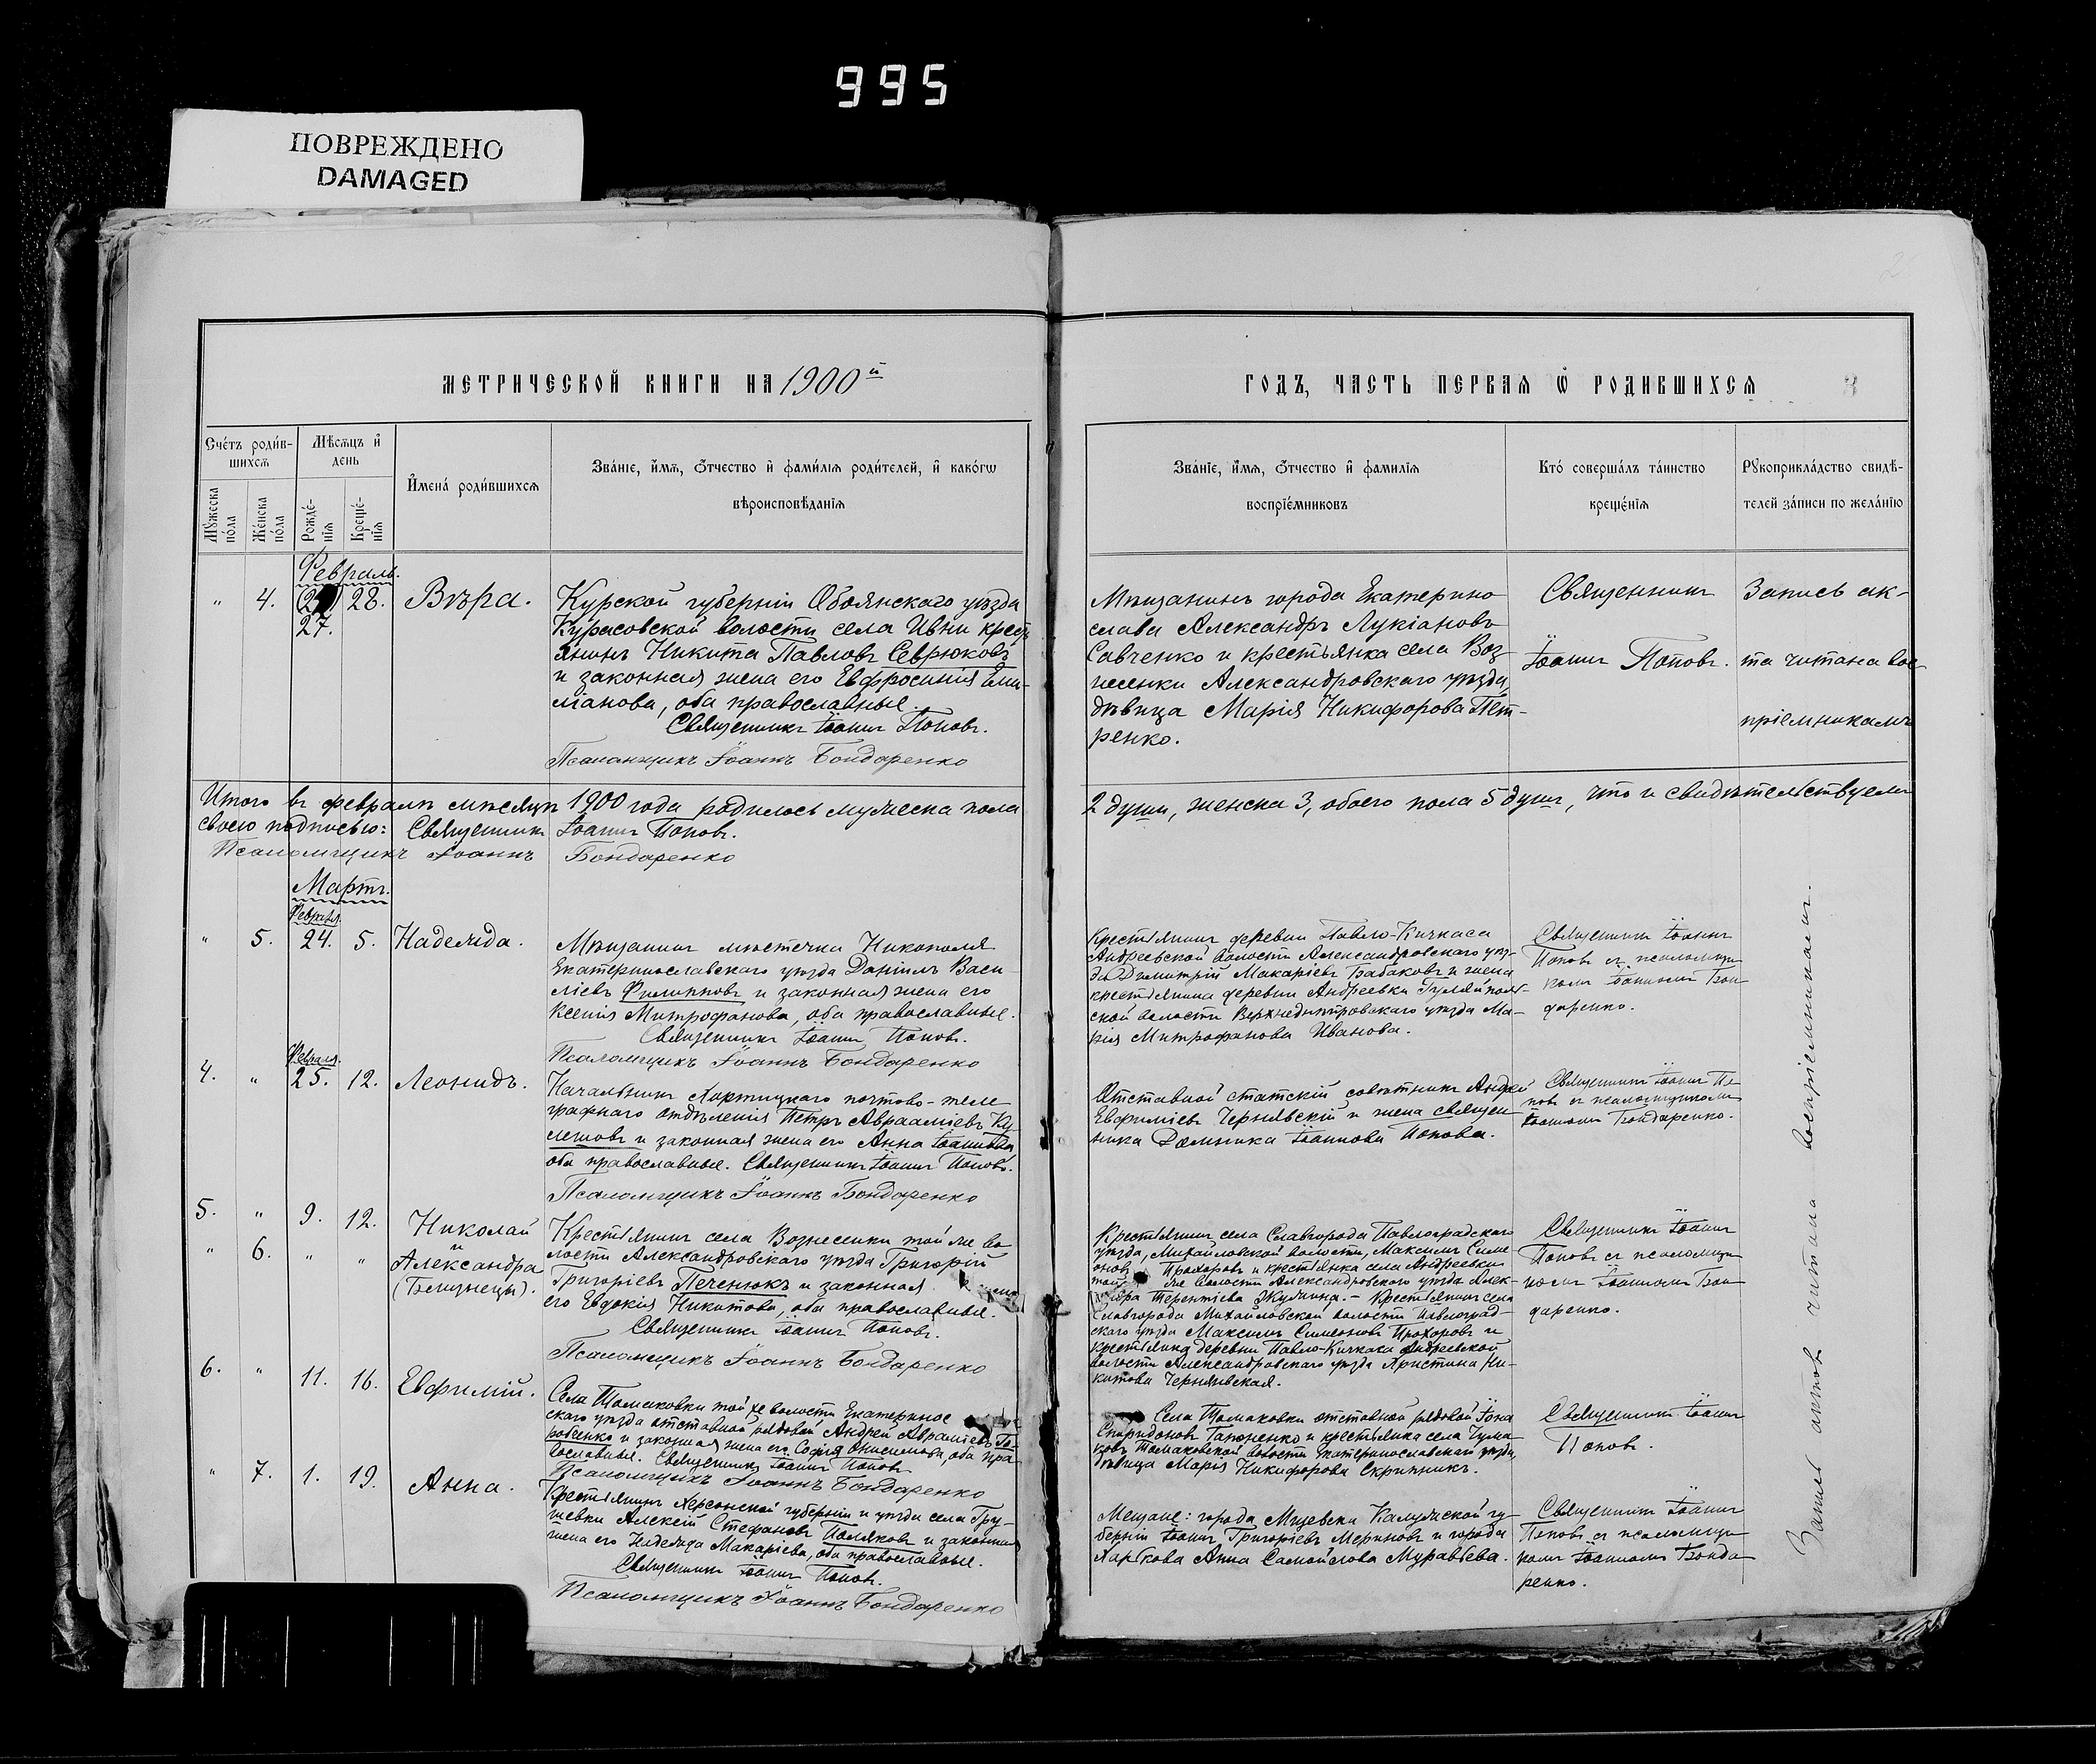 995
ПОВРЕЖДЕНО
DAMAGED
МЕТРИЧЕСКОЙ КНИГИ НА 1900й
Счетъ родив-
шихся
Мѣсяцъ и
день
Мужеска
пола
Женска
пола
Рожде-
нія
Креще-
нія
Имена родившихся
Званіе, имя, отчество и фамилія родителей, и какогѡ
вѣроисповѣданія
Февраль.
" 4. 27. 28. Вѣра.
Курской губерніи Обоянскаго уѣзда
Курасовской волости села Ивни крест
янинъ Никита Павловъ Севрюковъ
и законная жена его Евфросинія Еми-
ліанова, оба православные.
Священникъ Іоаннъ Поповъ.
Псаломщикъ Іоаннъ Бондаренко
Итого въ февралѣ мѣсяцѣ 1900 года родилось мужеска пола
своею подписью: Священникъ Іоаннъ Поповъ.
Псаломщикъ Іоаннъ Бондаренко
Мартъ.
Февраля.
" 5. 24. 5. Надежда.
Мѣщанинъ мѣстечка Никополя
Екатеринославскаго уѣзда Даніилъ Васи-
ліевъ Филипповъ и законная жена его
Ксенія Митрофанова, оба православные.
Священникъ Іоаннъ Поповъ.
Псаломщикъ Іоаннъ Бондаренко
Февраля.
4. " 25. 12. Леонидъ.
Начальникъ Хортицкаго почтово-теле
графнаго отдѣленія Петръ Авраамievъ Ку
лешовъ и законная жена его Анна Іоаннова
оба православные. Священникъ Іоаннъ Поповъ.
Псаломщикъ Іоаннъ Бондаренко
5. " 9. 12. Николай
и
" 6. " " Александра
(Близнецы).
Крестьянинъ села Вознесенки той же во
лости Александровскаго уѣзда Григорій
Григоріевъ Печенюкъ и законная жена
его Евдокія Никитова, оба православные.
Священникъ Іоаннъ Поповъ.
Псаломщикъ Іоаннъ Бондаренко
6. " 11. 16. Евфимій.
Села Томаковки той же волости Екатеринос
скаго уѣзда отставной рядовой Андрей Авраміевъ
и законная жена его Софія Онисимова, оба пра-
вославные. Священникъ Іоаннъ Поповъ
Псаломщикъ Іоаннъ Бондаренко
" 7. 1. 19. Анна.
Крестьянинъ Херсонской губерніи и уѣзда села Гру-
шевки Алексій Стефановъ Поляковъ и законная
жена его Надежда Макаріева, оба православные.
Священникъ Іоаннъ Поповъ.
Псаломщикъ Іоаннъ Бондаренко
ГОДЪ, ЧАСТЬ ПЕРВАЯ Ѡ РОДИВШИХСЯ
Званіе, имя, отчество и фамилія
воспріемниковъ
Кто совершалъ таинство
крещенія
Рукоприкладство свидѣ-
телей записи по желанію
Мѣщанинъ города Екатерино
слава Александръ Лукіановъ
Савченко и крестьянка села Воз
несенки Александровскаго уѣзда,
дѣвица Марія Никифорова Пет-
ренко.
Священникъ
Іоаннъ Поповъ.
Запись ак-
та читана вос
пріемникамъ
2 души, женска 3, обоего пола 5 душъ, что и свидѣтельствуемъ
Крестьянинъ деревни Павло-Кичкаса
Андреевской волости Александровскаго уѣз-
да Димитрій Макаріевъ Бабаковъ и жена
крестьянина деревни Андреевки Гуляйполь-
ской волости Верхнеднѣпровскаго уѣзда Ма-
рія Митрофанова Иванова.
Священникъ Іоаннъ
Поповъ съ псаломщи
комъ Іоанномъ Бон
даренко.
Отставной статскій совѣтникъ Андрей
Евфиміевъ Чернявскій и жена священ
ника Домника Іоаннова Попова.
Священникъ Іоаннъ По
повъ съ псаломщикомъ
Іоанномъ Бондаренко.
Крестьянинъ села Славгорода Павлоградскаго
уѣзда, Михайловской волости, Максимъ Симе
оновъ Прохоровъ и крестьянка села Андреевки
той же волости Александровскаго уѣзда Алек-
Терентіева Жулина. - Крестьянинъ села
Славгорода Михайловской волости Павлоград-
скаго уѣзда Максимъ Симеоновъ Прохоровъ и
крестьянка деревни Павло-Кичкаса Андреевской
волости Александровскаго уѣзда Христина Ни-
китова Чернявская.
Священникъ Іоаннъ
Поповъ съ псаломщи
комъ Іоанномъ Бон
даренко.
Села Томаковки отставной рядовой Іона
Спиридоновъ Гапоненко и крестьянка села Чума
ковъ Томаковской волости Екатеринославскаго уѣзда,
дѣвица Марія Никифорова Скрипникъ.
Священникъ Іоаннъ
Поповъ.
Мещане: города Калужской гу-
берніи Іоаннъ Григоріевъ Мериновъ и города
Харькова Анна Самойлова Муравьева.
Священникъ Іоаннъ
Поповъ съ псаломщи
комъ Іоанномъ Бонда
ренко.
Запись актовъ читана воспріемникамъ.